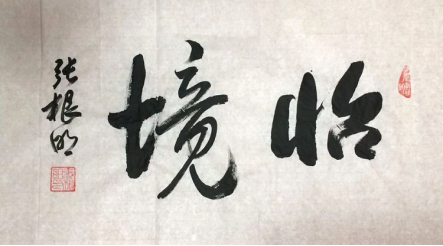 怡境
张根明